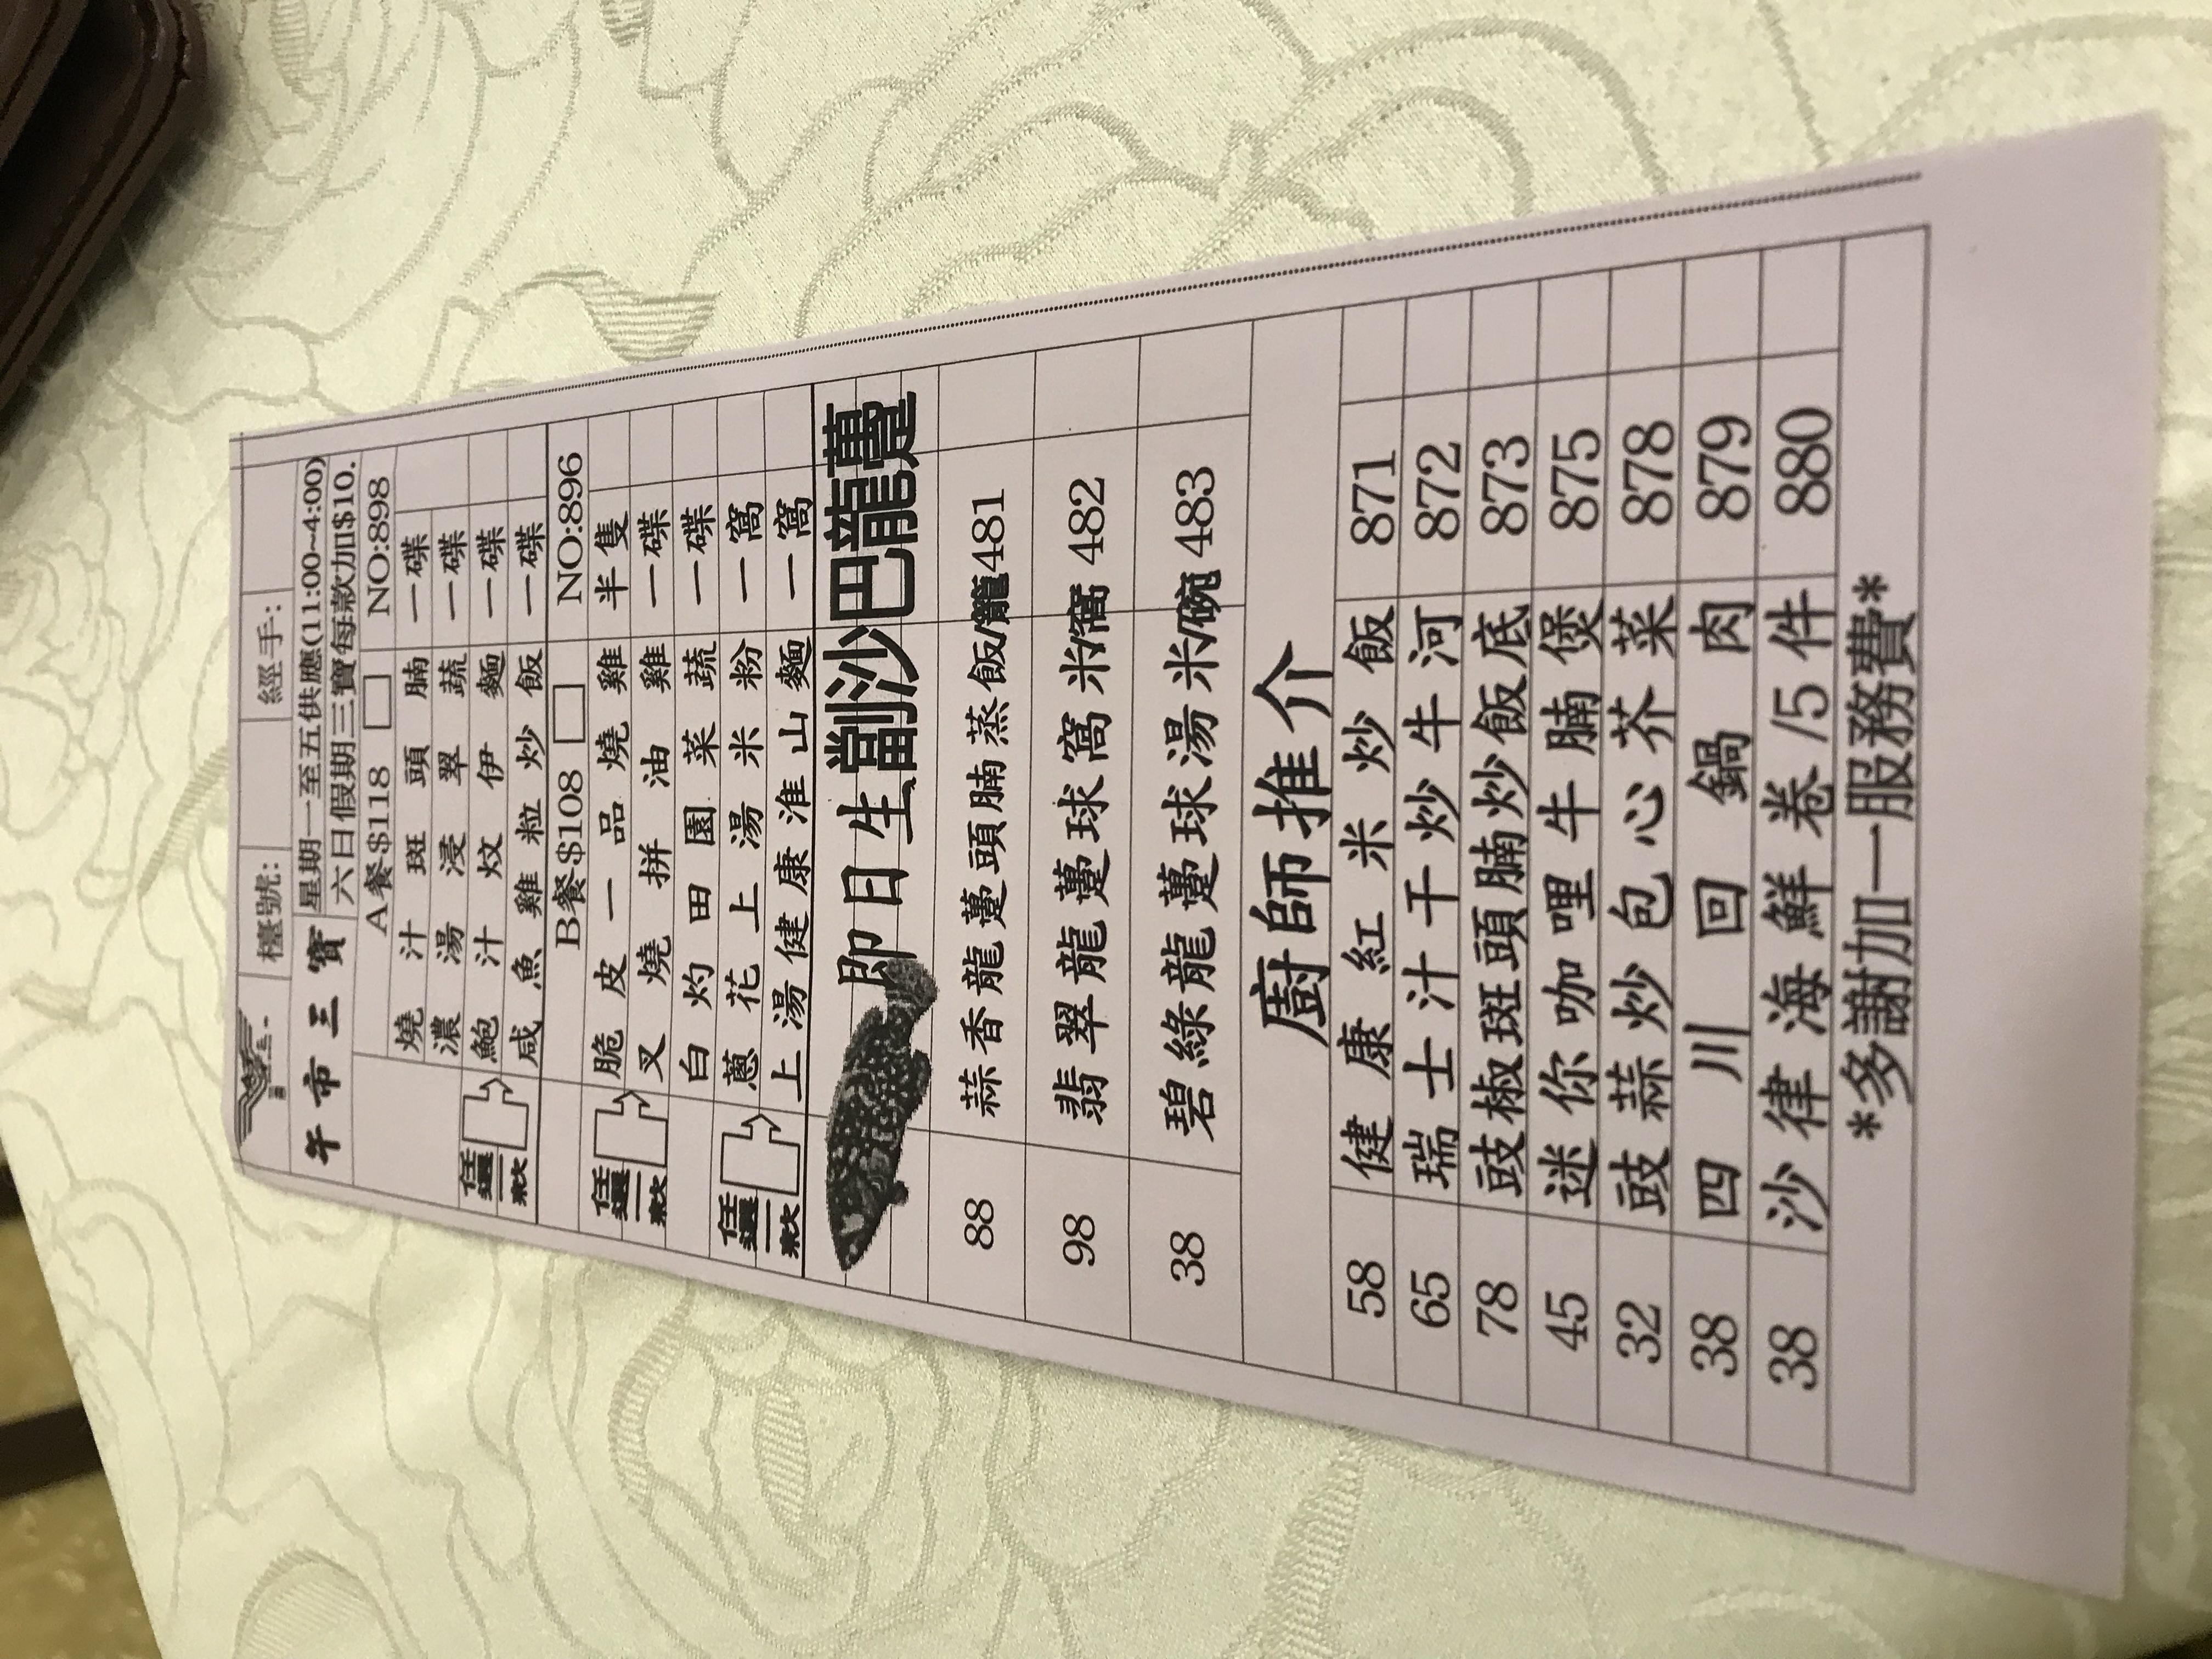 檯號: 經手:
午市三寶 星期一至五供應(11:00~4:00)
六日假期三寶每款加$10.
A餐$118 NO:898
燒汁斑頭腩 一碟
濃湯浸翠蔬 一碟
任選一款 鮑汁炆伊麵 一碟
咸魚雞粒炒飯 一碟
B餐$108 NO:896
任選一款 脆皮一品燒雞 半隻
叉燒拼油雞 一碟
白灼田園菜蔬 一碟
任選一款 蔥花上湯米粉 一窩
上湯健康淮山麵 一窩
即日生劏沙巴龍躉
88 蒜香龍躉頭腩蒸飯/籠 481
98 翡翠龍躉球窩米/窩 482
38 碧綠龍躉球湯米/碗 483
廚師推介
58 健康紅米炒飯 871
65 瑞士汁干炒牛河 872
78 豉椒斑頭腩炒飯底 873
45 迷你咖哩牛腩煲 875
32 豉蒜炒包心芥菜 878
38 四川回鍋肉 879
38 沙律海鮮卷/5件 880
*多謝加一服務費*